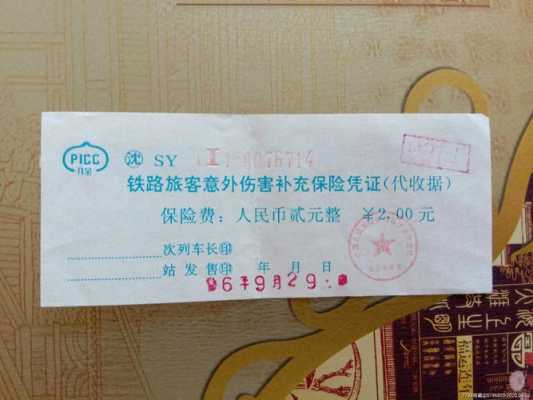 PICC
沈 SY 0076714
铁路旅客意外伤害补充保险凭证(代收据)
保险费：人民币贰元整 ￥2.00元
次列车长印
站发售印 年 月 日
6年9月29